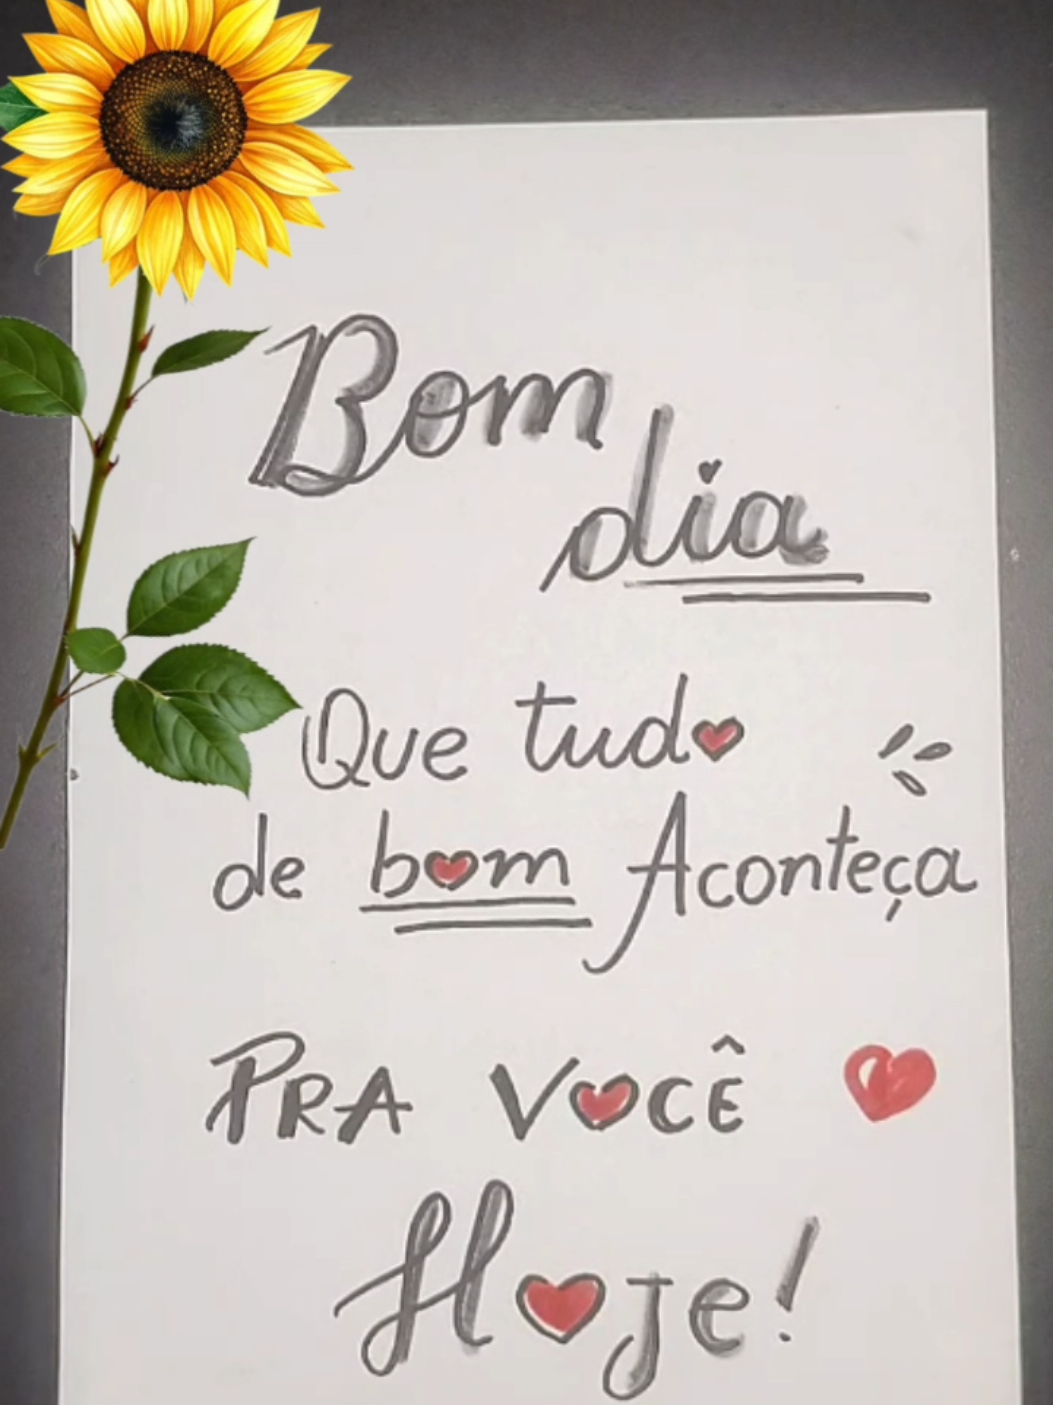 Bom
dia
Que tudo
de bom Aconteça
PRA VOCÊ
Hoje!